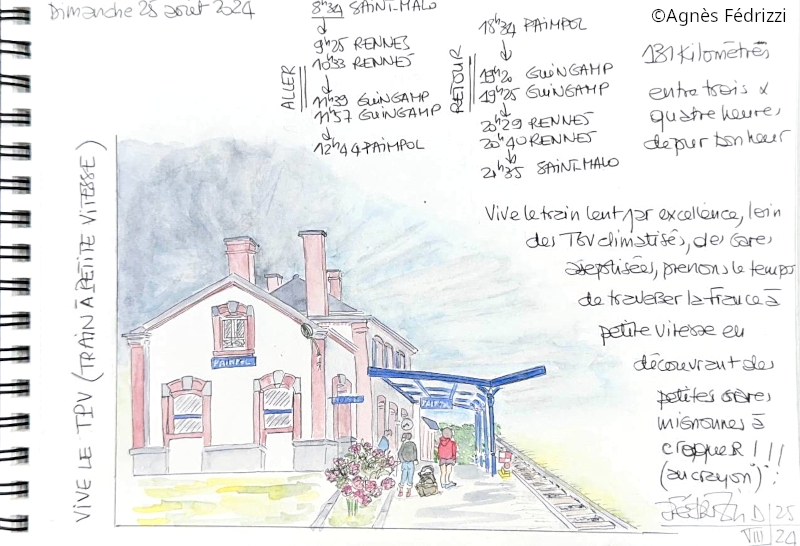 Dimanche 25 août 2024
©Agnès Fédrizzi
ALLER
8h34 SAINT-MALO
9h25 RENNES
10h33 RENNES
11h39 GUINGAMP
11h57 GUINGAMP
12h44 PAIMPOL
RETOUR
18h34 PAIMPOL
19h20 GUINGAMP
19h25 GUINGAMP
20h29 RENNES
20h40 RENNES
21h35 SAINT-MALO
131 Kilomètres
entre trois &
quatre heures
de pur bonheur
VIVE LE TPV (TRAIN À PETITE VITESSE)
Vive le train lent par excellence, loin
des TGV climatisés, des Gares
aseptisées, prenons le temps
de traverser la France à
petite vitesse en
découvrant des
petites Gares
mignonnes à
croquer !!!
(au crayon)
PAIMPOL
PAIMPOL
25
VIII
24